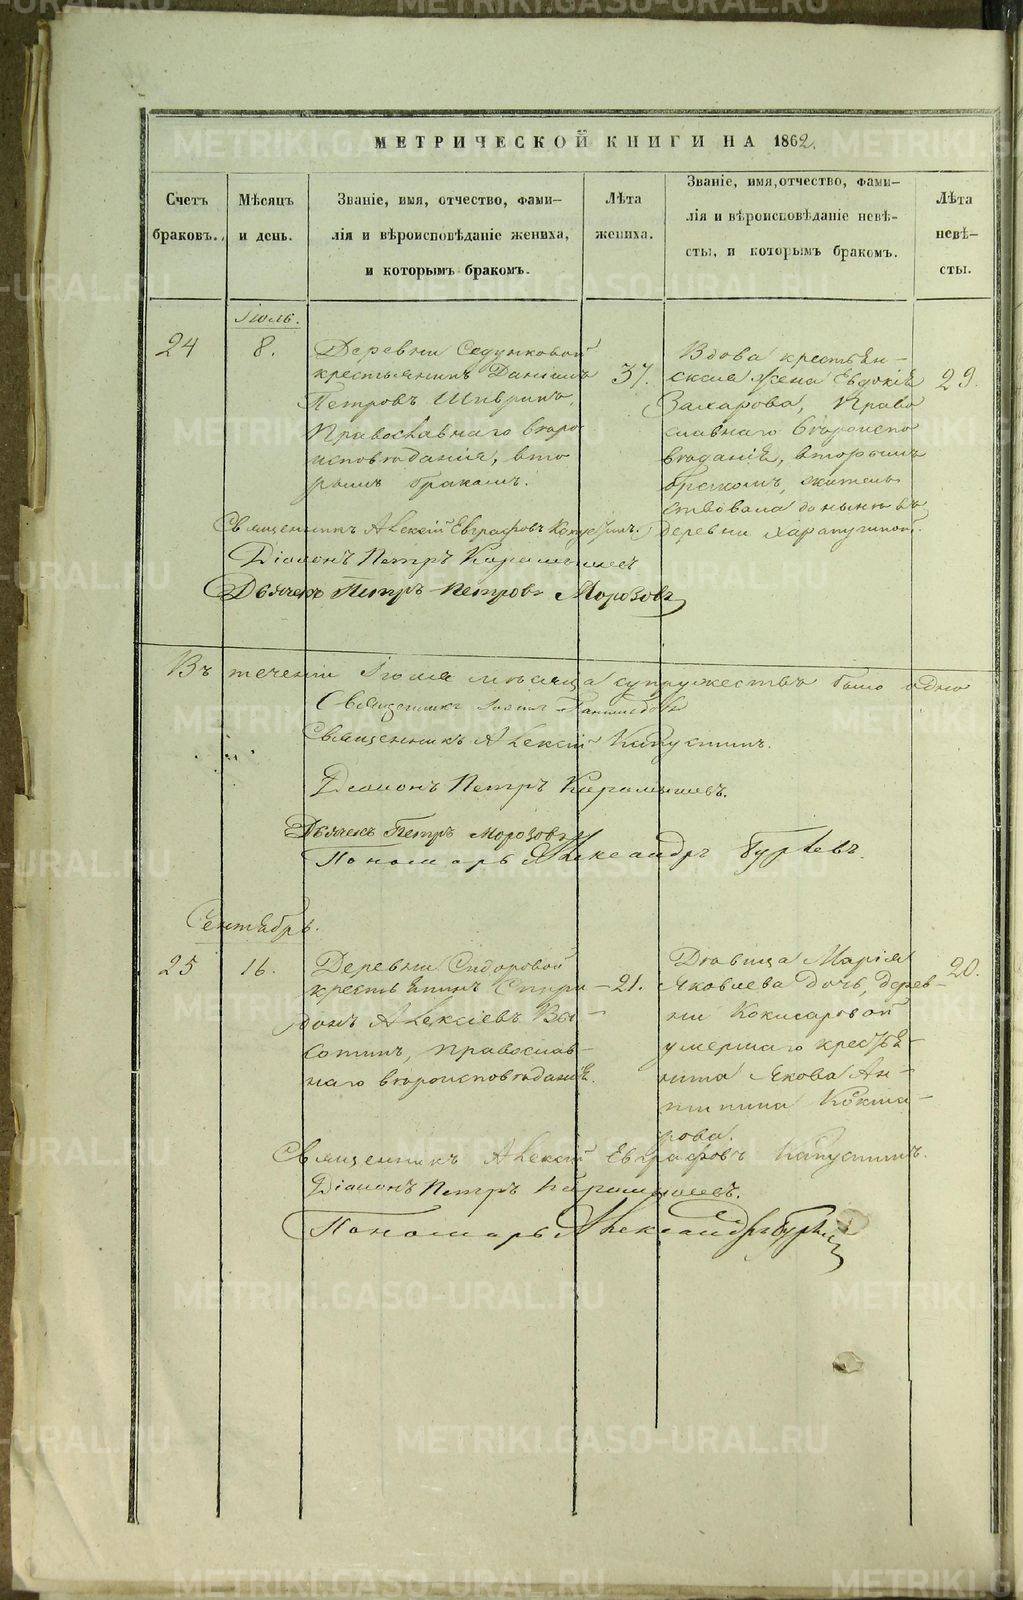 МЕТРИЧЕСКОЙ КНИГИ НА 1862.
Счетъ браковъ.
Мѣсяцъ и день.
Званіе, имя, отчество, фами-
лія и вѣроисповѣданіе жениха,
и которымъ бракомъ.
Лѣта
жениха.
Званіе, имя, отчество, фами-
лія и вѣроисповѣданіе невѣ-
сты, и которымъ бракомъ.
Лѣта
невѣ-
сты.
Іюль.
24
8.
Деревни Седунковой
крестьянинъ Даніилъ
Петровъ Шивринъ,
Православнаго вѣро
исповѣданія, вто
рымъ бракомъ.
37.
Вдова крестьян-
ская жена Евдокія
Захарова, Право
славнаго вѣроиспо
вѣданія, вторымъ
бракомъ, житель
ствовала до нынѣ въ
деревни
29.
Священникъ Алексій Евграфовъ Капустинъ.
Діаконъ Петръ Карамышевъ
Дьячекъ Петръ Петровъ Морозовъ
Въ теченіи Іюля мѣсяца супружествъ было одно
Священникъ
Священникъ Алексій Капустинъ.
Діаконъ Петръ Карамышевъ.
Дьячекъ Петръ Морозовъ
Пономарь Александръ Гурьевъ.
Сентябрь.
25
16.
Деревни Сидоровой
крестьянинъ Спири
донъ Алексіевъ Вы-
сотинъ, православ-
наго вѣроисповѣданія.
21.
Дѣвица Марія
Яковлева дочь, дерев-
ни Кокшаровой
умершаго крестья-
нина Якова Ан-
типина Кокша-
рова.
20.
Священникъ Алексій Евграфовъ Капустинъ.
Діаконъ Петръ Карамышевъ.
Пономарь Александръ Гурьевъ
METRIKI.GASO-URAL.RU